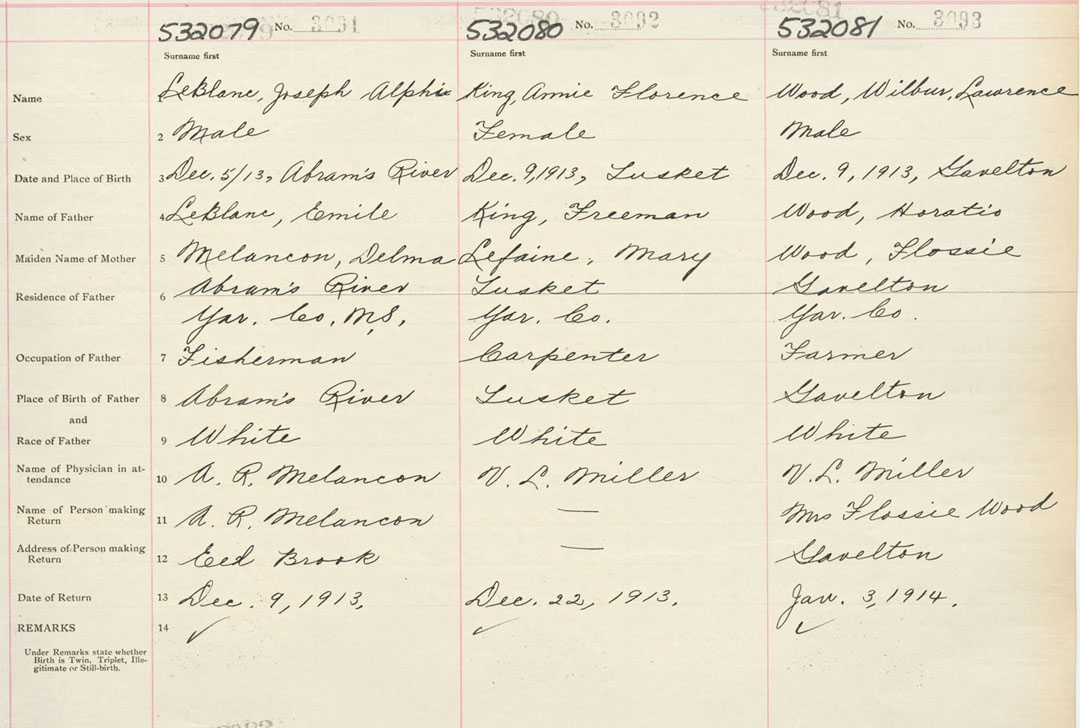 532079 No. 3091 532080 No. 3092 532081 No. 3093
Surname first Surname first Surname first
Name LeBlanc, Joseph Alphie King, Annie Florence Wood, Wilbur, Lawrence
Sex 2 Male Female Male
Date and Place of Birth 3 Dec. 5/13, Abram's River Dec. 9, 1913, Tusket Dec. 9, 1913, Gavelton
Name of Father 4 LeBlanc, Emile King, Freeman Wood, Horatio
Maiden Name of Mother 5 Melancon, Delma Lefaine, Mary Wood, Flossie
Residence of Father 6 Abram's River Tusket Gavelton
Yar. Co, N.S, Yar. Co. Yar. Co.
Occupation of Father 7 Fisherman Carpenter Farmer
Place of Birth of Father 8 Abram's River Tusket Gavelton
and
Race of Father 9 White White White
Name of Physician in at-
tendance 10 A. R. Melancon V. L. Miller V. L. Miller
Name of Person making
Return 11 A. R. Melancon — Mrs Flossie Wood
Address of Person making
Return 12 Eed Brook — Gavelton
Date of Return 13 Dec. 9, 1913, Dec. 22, 1913. Jan. 3, 1914.
REMARKS 14 ✓ ✓ ✓
Under Remarks state whether
Birth is Twin, Triplet, Ille-
gitimate or Still-birth.